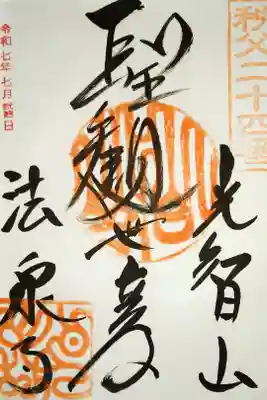 秩父二十四番
光智山
聖観世音
法泉寺
令和七年七月吉日